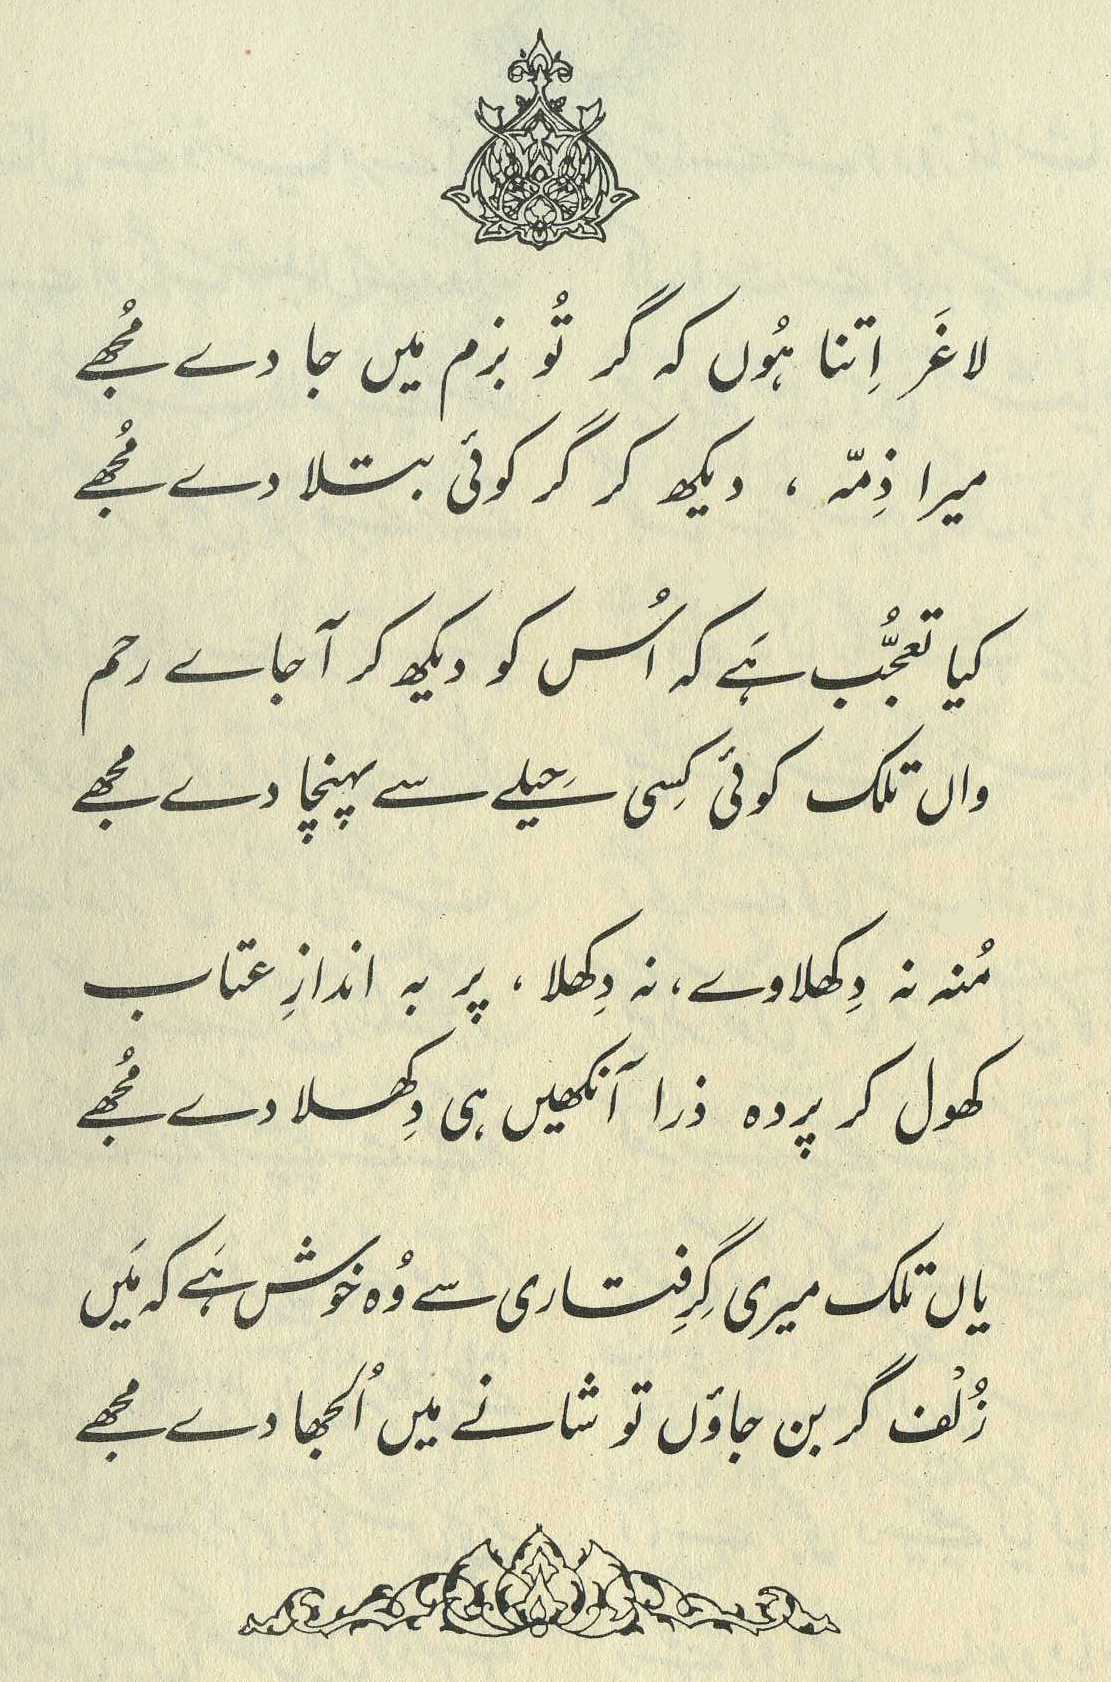 لاغَر اِتنا ہُوں کہ گر تُو بزم میں جا دے مُجھے
میرا ذِمّہ ، دیکھ کر گر کوئی بتلا دے مُجھے
کیا تعجُّب ہَے کہ اُس کو دیکھ کر آجاے رحم
واں تلک کوئی کِسی حِیلے سے پہنچا دے مجھے
مُنہ نہ دِکھلاوے، نہ دِکھلا ، پر بہ اندازِ عتاب
کھول کر پردہ ذرا آنکھیں ہی دِکھلا دے مُجھے
یاں تلک میری گِرِفتاری سے وُہ خوش ہَے کہ مَیں
زُلْف گر بن جاؤں تو شانے میں اُلجھا دے مجھے